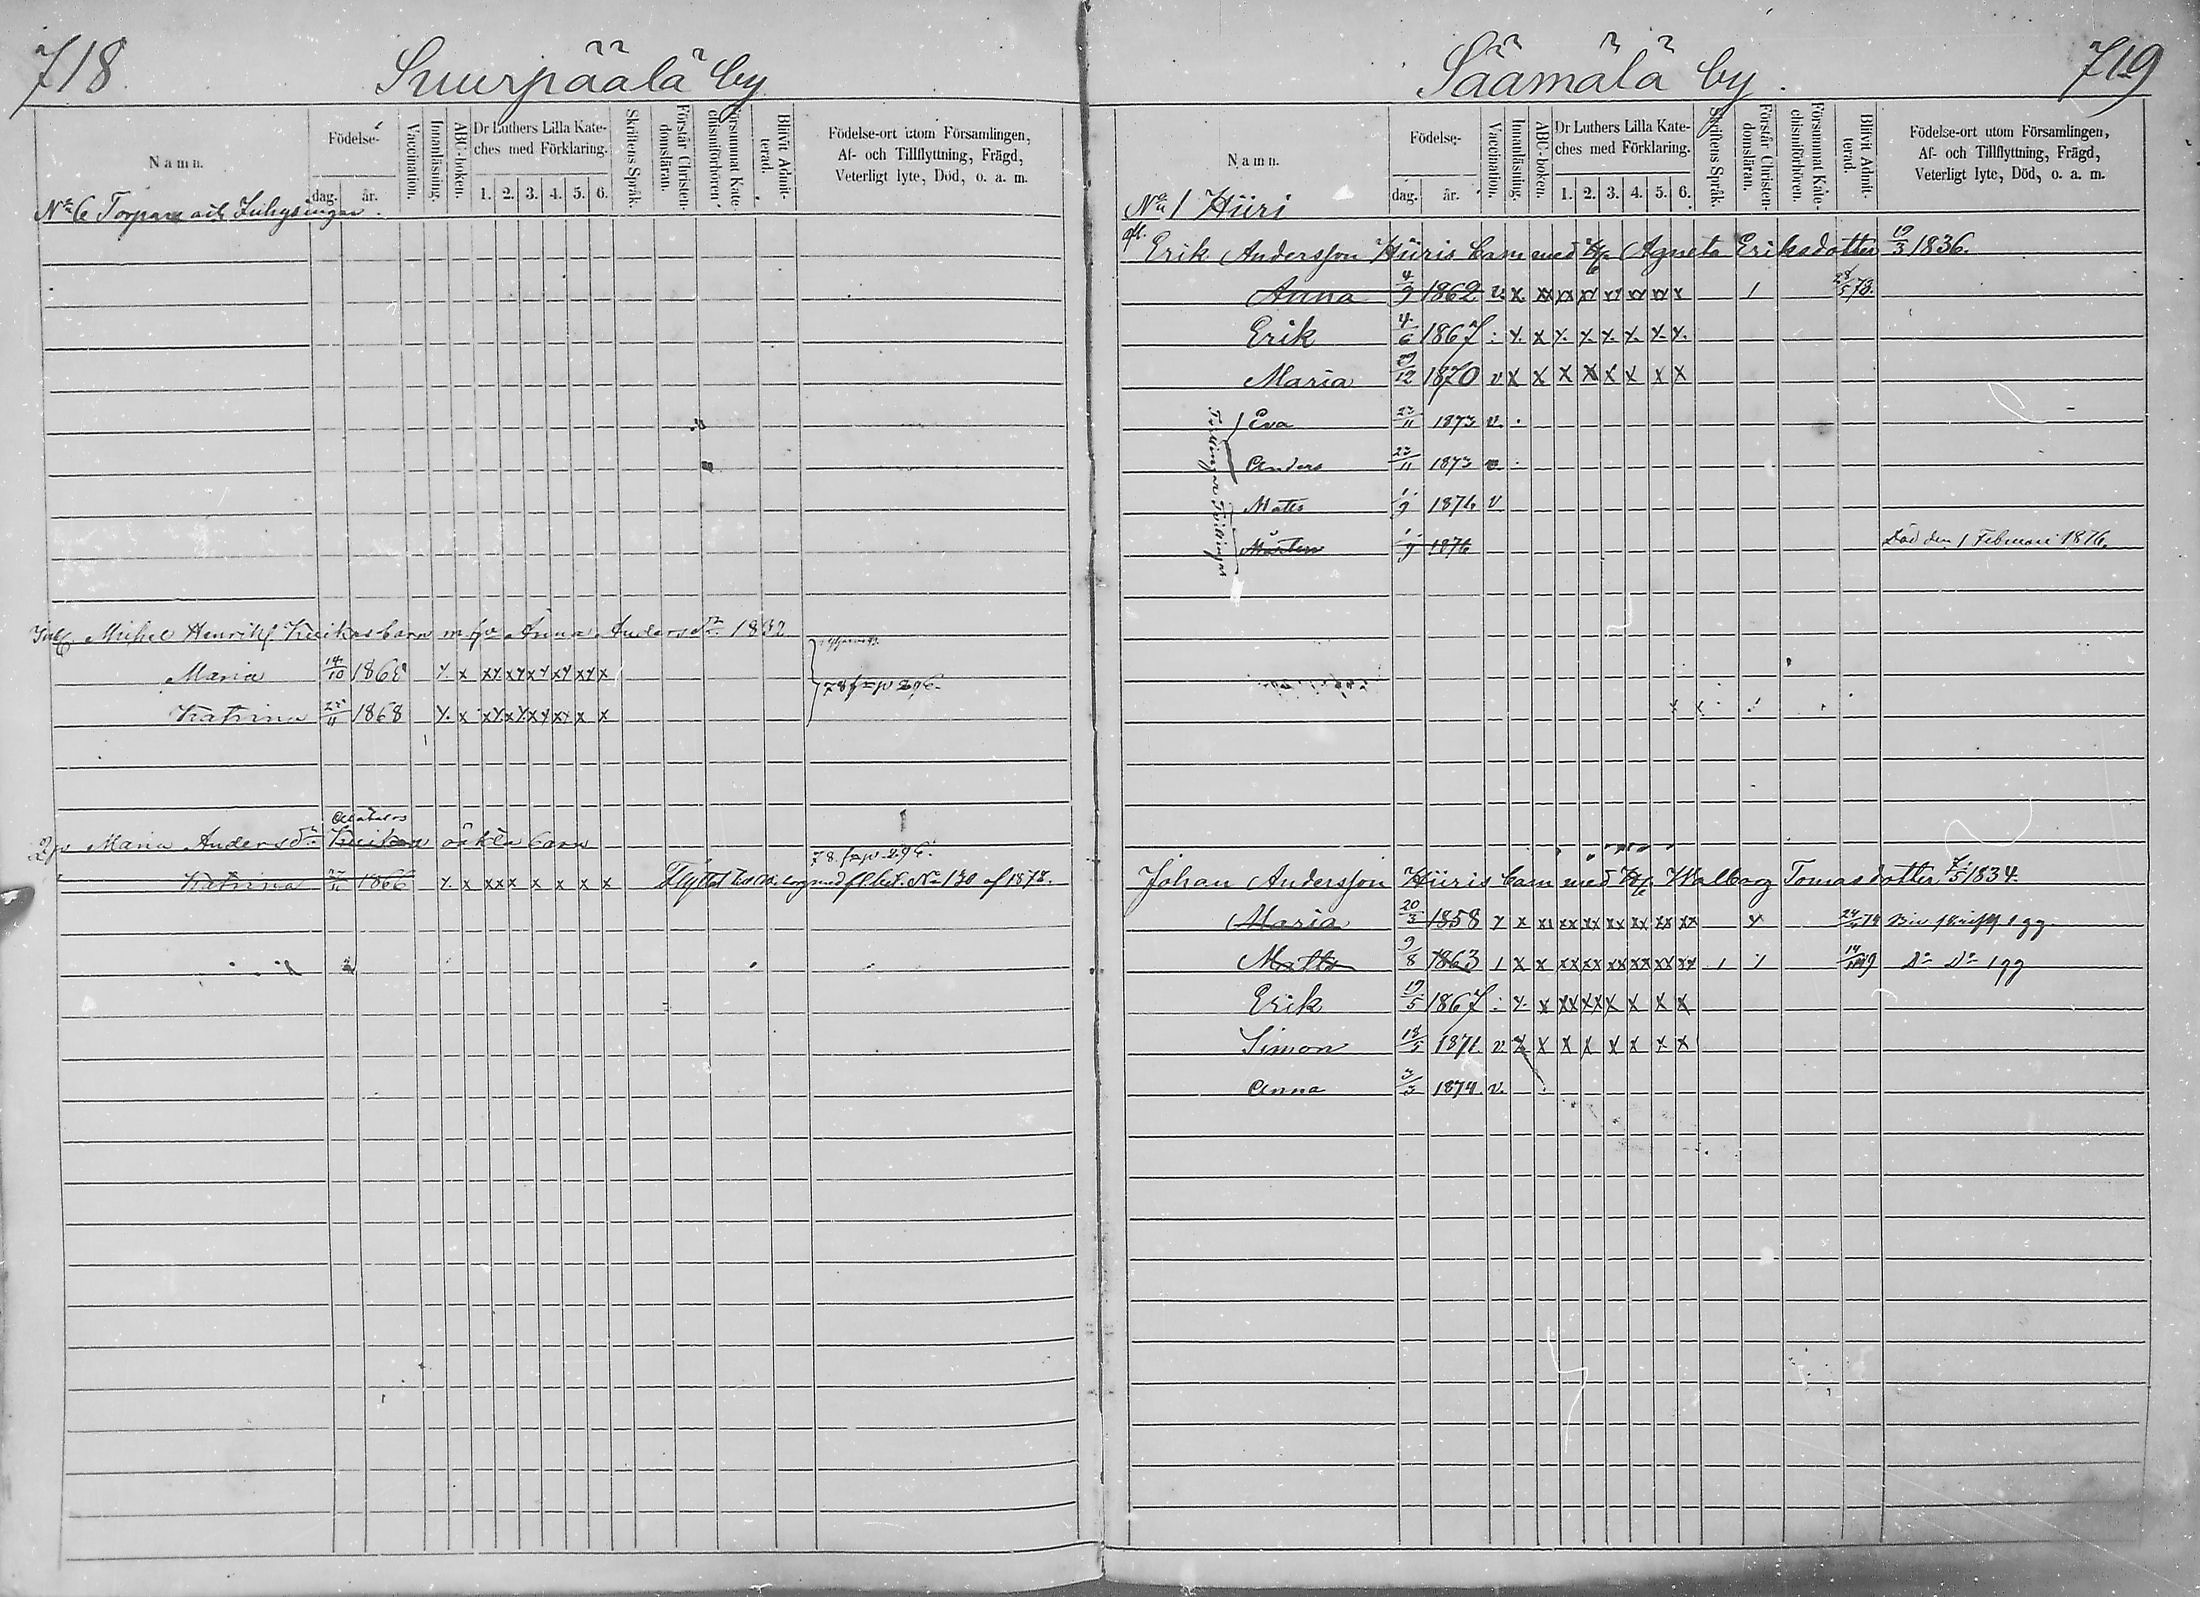 718
Suurpäälä by
Namn.
Födelse-
dag. år.
Vaccination.
Innanläsning.
ABC-boken.
Dr Luthers Lilla Kate-
ches med Förklaring.
1. 2. 3. 4. 5. 6.
Skriftens Språk.
Förstår Christen-
domsläran.
Försummat Kate-
chismiförhören.
Blifvit Admit-
terad.
Födelse-ort utom Församlingen,
Af- och Tillflyttning, Frägd,
Veterligt lyte, Död, o. a. m.
No 6 Torpare och Inhysingar.
Michel Henriks barn Anna Anders dr 1832
Maria 14/10 1868 x x xx xx xx xx xx x
78 p 296.
Katrina 1868 x x xx xx xx xx x x
Maria Anders dr oäkta barn
78 p 296.
Katrina 1866 x x xx x x x x x Flyttat No 130 af 1878.
719
Säämälä by.
Namn.
Födelse-
dag. år.
Vaccination.
Innanläsning.
ABC-boken.
Dr Luthers Lilla Kate-
ches med Förklaring.
1. 2. 3. 4. 5. 6.
Skriftens Språk.
Förstår Christen-
domsläran.
Försummat Kate-
chismiförhören.
Blifvit Admit-
terad.
Födelse-ort utom Församlingen,
Af- och Tillflyttning, Frägd,
Veterligt lyte, Död, o. a. m.
No 1 Hüri
Erik Andersson Hüris barn med Agneta Eriksdotter 19/3 1836.
Anna 4/9 1862 v. x xx xx xx xx xx xx x 1 28/5 78.
Erik 4/6 1867 : x. x x. x. x. x. x. x.
Maria 29/12 1870 v x x x x x x x x
Eva 23/11 1873 v.
Anders 23/11 1873
Tvillingar
Matts 1/9 1876 v
Mårten 1/9 1876 Död den 1 Februari 1876.
Tvillingar
Johan Andersson Hüris barn med Walborg Tomasdotter 1834.
Maria 20/3 1858 x x xx xx xx xx xx xx xx x 1 gg.
Matts 9/8 1863 1 x x xx xx xx xx xx xx 1 1 Do Do 1 gg
Erik 19/5 1867 : x x xx xx x x x x
Simon 18/5 1871 v. x x x x x x x x
Anna 3/3 1874. v.